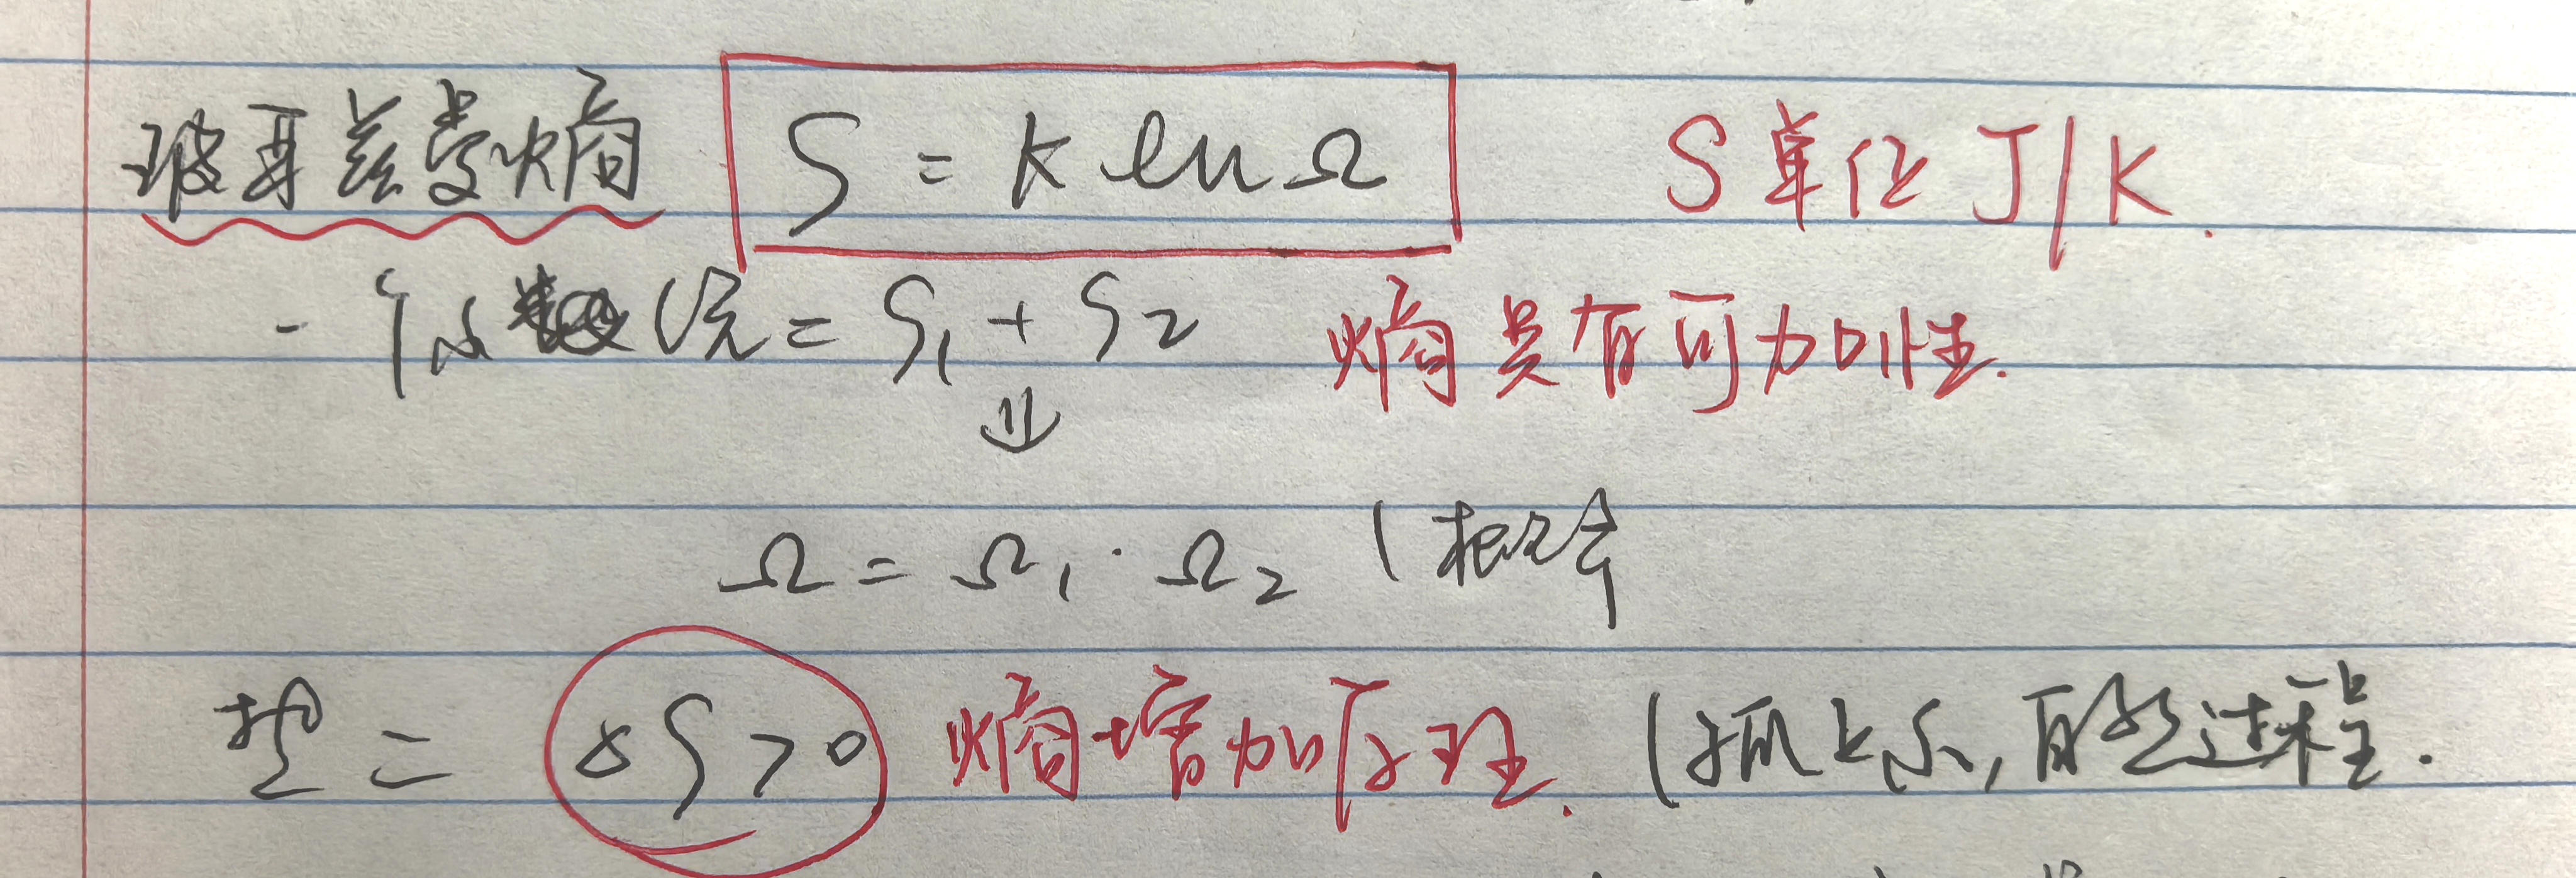 玻耳兹曼熵 S = k ln Ω S单位 J/K.
一个系统 = S₁ + S₂ 熵具有可加性.
⇓
Ω = Ω₁ · Ω₂ (概率
热二 ΔS > 0 熵增加原理. (孤立系, 自然过程.